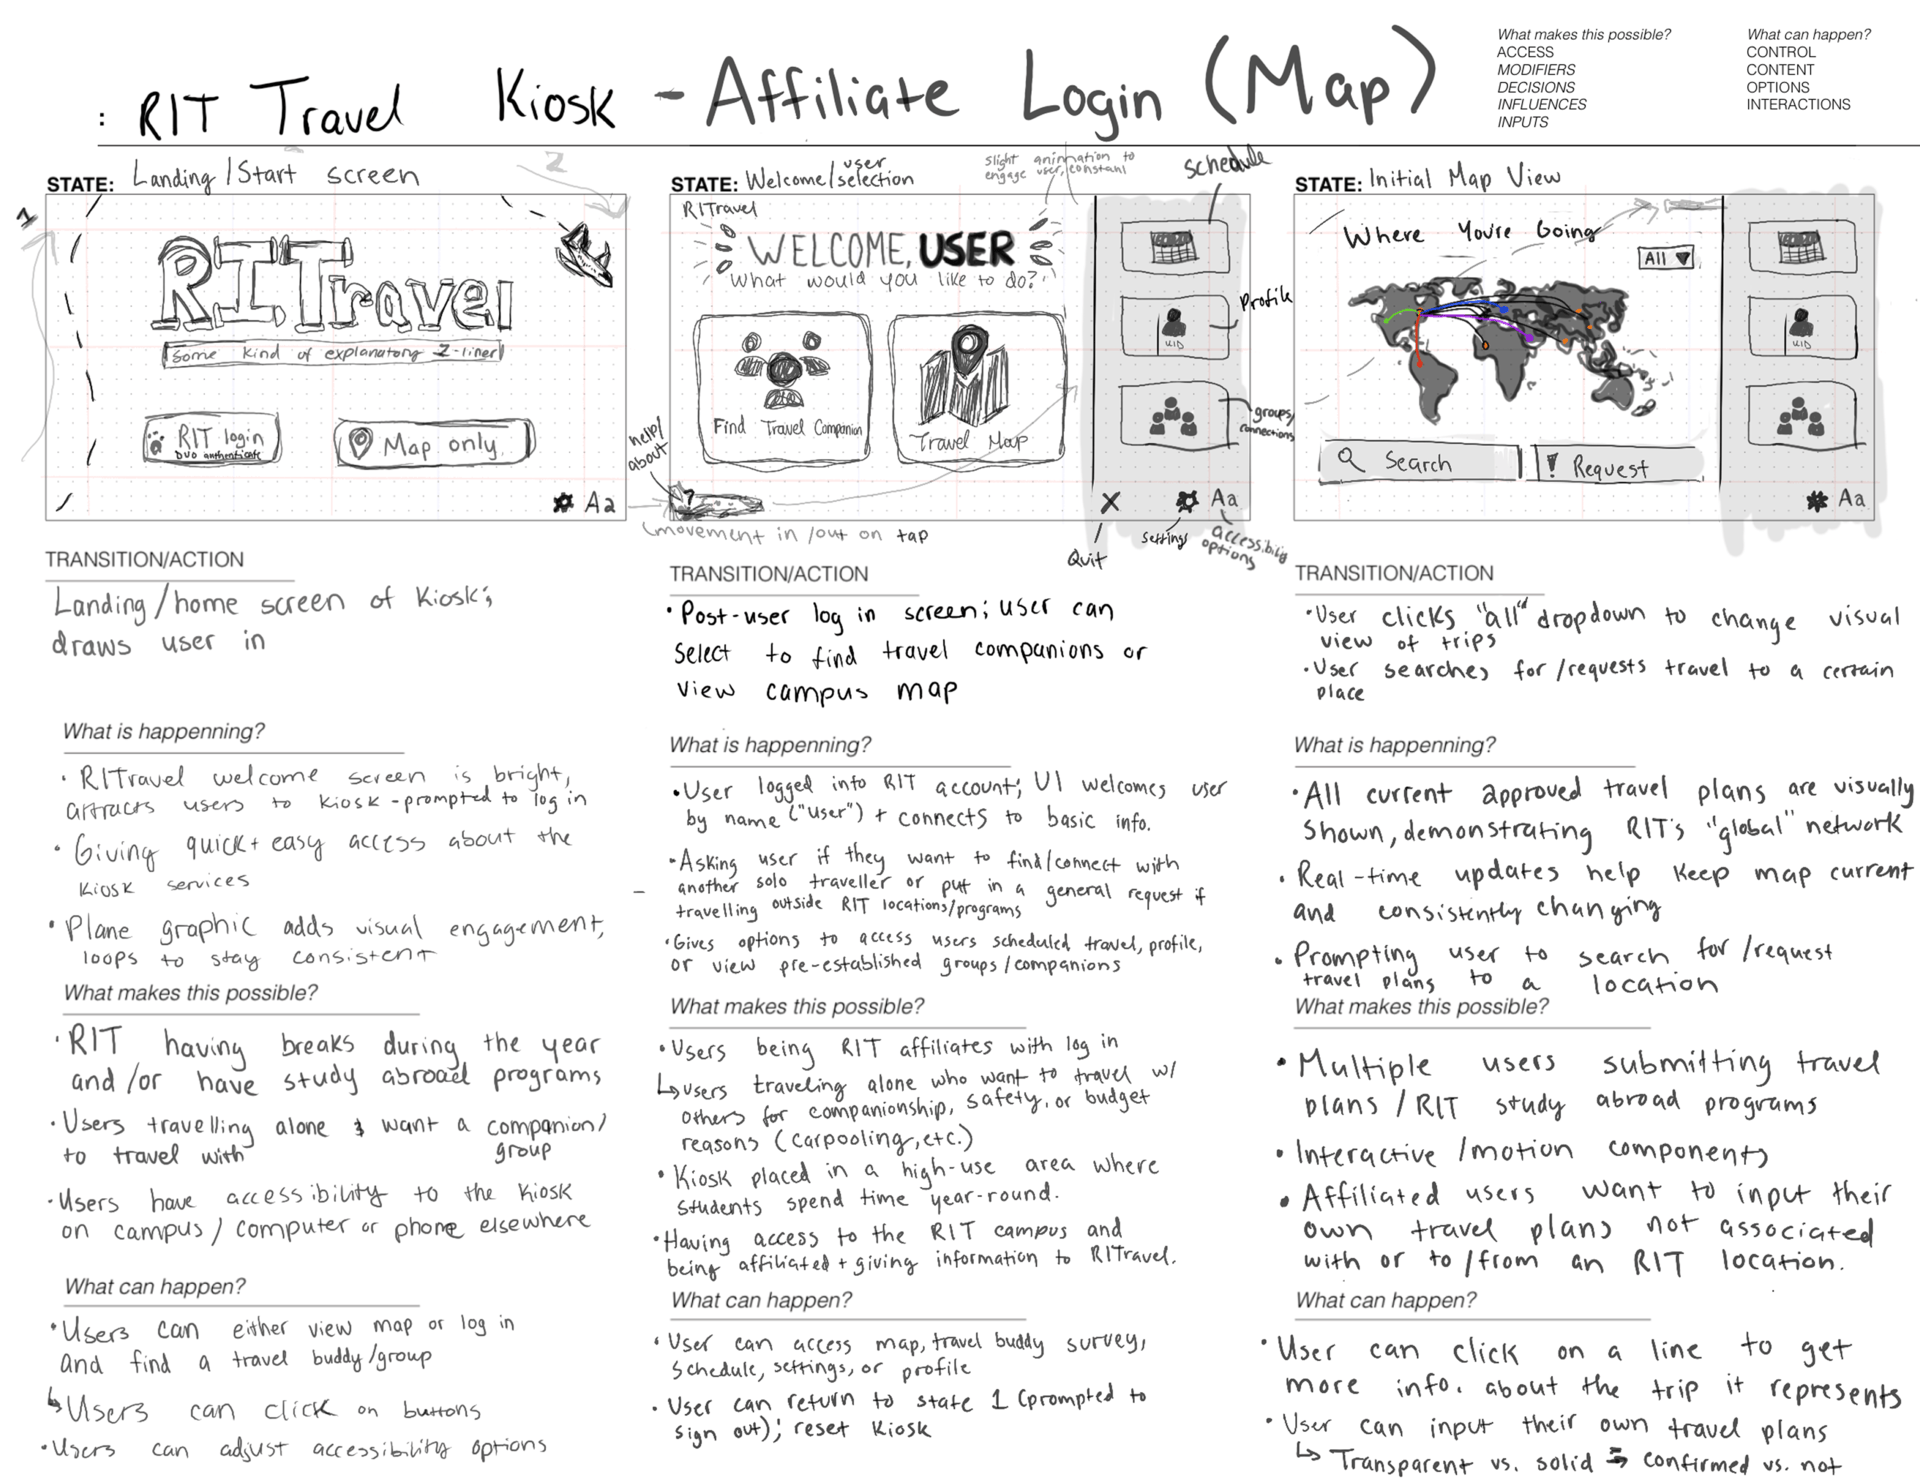 : RIT Travel Kiosk - Affiliate Login (Map)
What makes this possible?
ACCESS
MODIFIERS
DECISIONS
INFLUENCES
INPUTS
What can happen?
CONTROL
CONTENT
OPTIONS
INTERACTIONS
STATE: Landing/Start screen
1
2
RITravel
Some kind of explanatory 2-liner
RIT login
DUO authenticate
Map only
Aa
TRANSITION/ACTION
Landing/home screen of Kiosk;
draws user in
What is happenning?
• RITravel welcome screen is bright,
attracts users to kiosk - prompted to log in
• Giving quick + easy access about the
Kiosk services
• Plane graphic adds visual engagement,
loops to stay consistent
What makes this possible?
• RIT having breaks during the year
and/or have study abroad programs
• Users travelling alone & want a companion/
group
to travel with
• Users have accessibility to the Kiosk
on campus/computer or phone elsewhere
What can happen?
• Users can either view map or log in
and find a travel buddy/group
↳ Users can click on buttons
• Users can adjust accessibility options
STATE: Welcome/user selection
slight animation to
engage user, constant
schedule
RITravel
WELCOME, USER
What would you like to do?
Profile
UID
Find Travel Companion
Travel Map
groups/
connections
help/
about
?
X
Aa
(movement in/out on tap
Quit
settings
accessibility
options
TRANSITION/ACTION
• Post-user log in screen; user can
select to find travel companions or
view campus map
What is happenning?
• User logged into RIT account; UI welcomes user
by name ("user") + connects to basic info.
• Asking user if they want to find/connect with
another solo traveller or put in a general request if
travelling outside RIT locations/programs
• Gives options to access users scheduled travel, profile,
or view pre-established groups/companions
What makes this possible?
• Users being RIT affiliates with log in
↳ users traveling alone who want to travel w/
others for companionship, safety, or budget
reasons (carpooling, etc.)
• Kiosk placed in a high-use area where
students spend time year-round.
• Having access to the RIT campus and
being affiliated + giving information to RITravel.
What can happen?
• User can access map, travel buddy survey,
schedule, settings, or profile
• User can return to state 1 (prompted to
sign out); reset Kiosk
STATE: Initial Map View
Where You're Going
All ▼
UID
Search
! Request
Aa
TRANSITION/ACTION
• User clicks "all" dropdown to change visual
view of trips
• User searches for/requests travel to a certain
place
What is happenning?
• All current approved travel plans are visually
shown, demonstrating RIT's "global" network
• Real-time updates help keep map current
and consistently changing
• Prompting user to search for/request
travel plans to a location
What makes this possible?
• Multiple users submitting travel
plans/RIT study abroad programs
• Interactive/motion components
• Affiliated users want to input their
own travel plans not associated
with or to/from an RIT location.
What can happen?
• User can click on a line to get
more info. about the trip it represents
• User can input their own travel plans
↳ Transparent vs. solid = confirmed vs. not